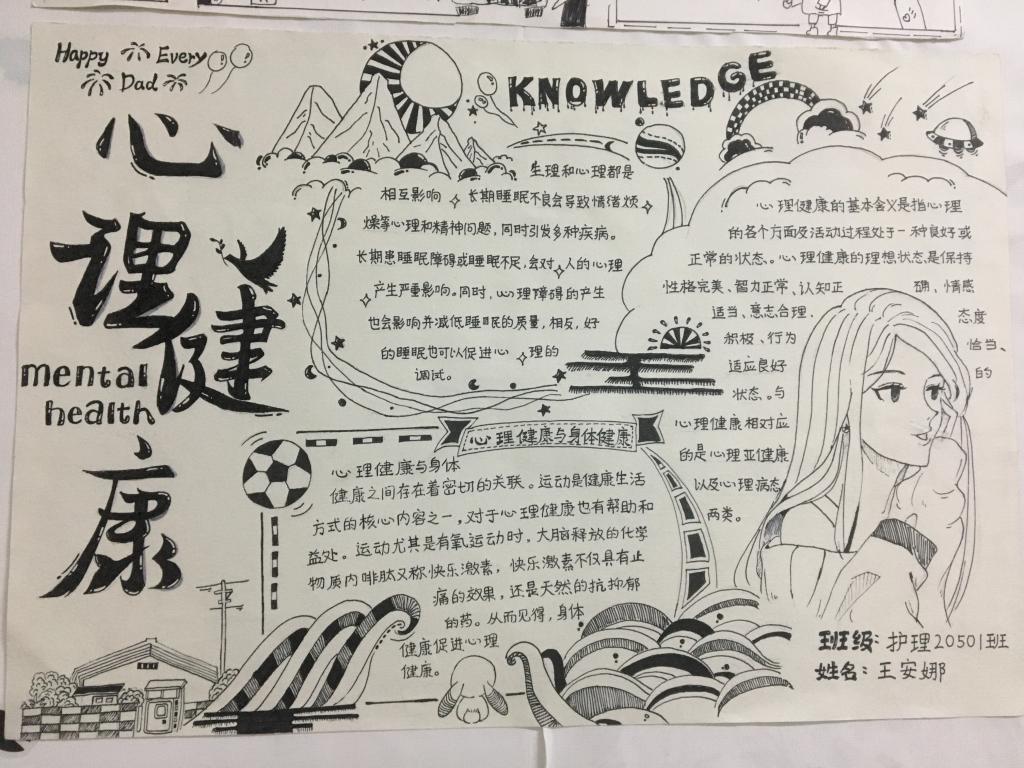 Happy Every
Dad
心
理健
康
mental
health
KNOWLEDGE
生理和心理都是
相互影响 长期睡眠不良会导致情绪烦
燥等心理和精神问题，同时引发多种疾病。
长期患睡眠障碍或睡眠不足，会对人的心理
产生严重影响。同时，心理障碍的产生
也会影响并减低睡眠的质量，相反，好
的睡眠也可以促进心理的
调试。
心理健康的基本含义是指心理
的各个方面及活动过程处于一种良好或
正常的状态。心理健康的理想状态是保持
性格完美、智力正常、认知正确、情感
适当、意志合理、态度
积极、行为恰当、
适应良好的
状态。与
心理健康相对应
的是心理亚健康
以及心理病态
两类。
心理健康与身体健康
心理健康与身体
健康之间存在着密切的关联。运动是健康生活
方式的核心内容之一，对于心理健康也有帮助和
益处。运动尤其是有氧运动时，大脑释放的化学
物质内啡肽又称快乐激素，快乐激素不仅具有止
痛的效果，还是天然的抗抑郁
的药。从而见得，身体
健康促进心理
健康。
班级：护理20501班
姓名：王安娜